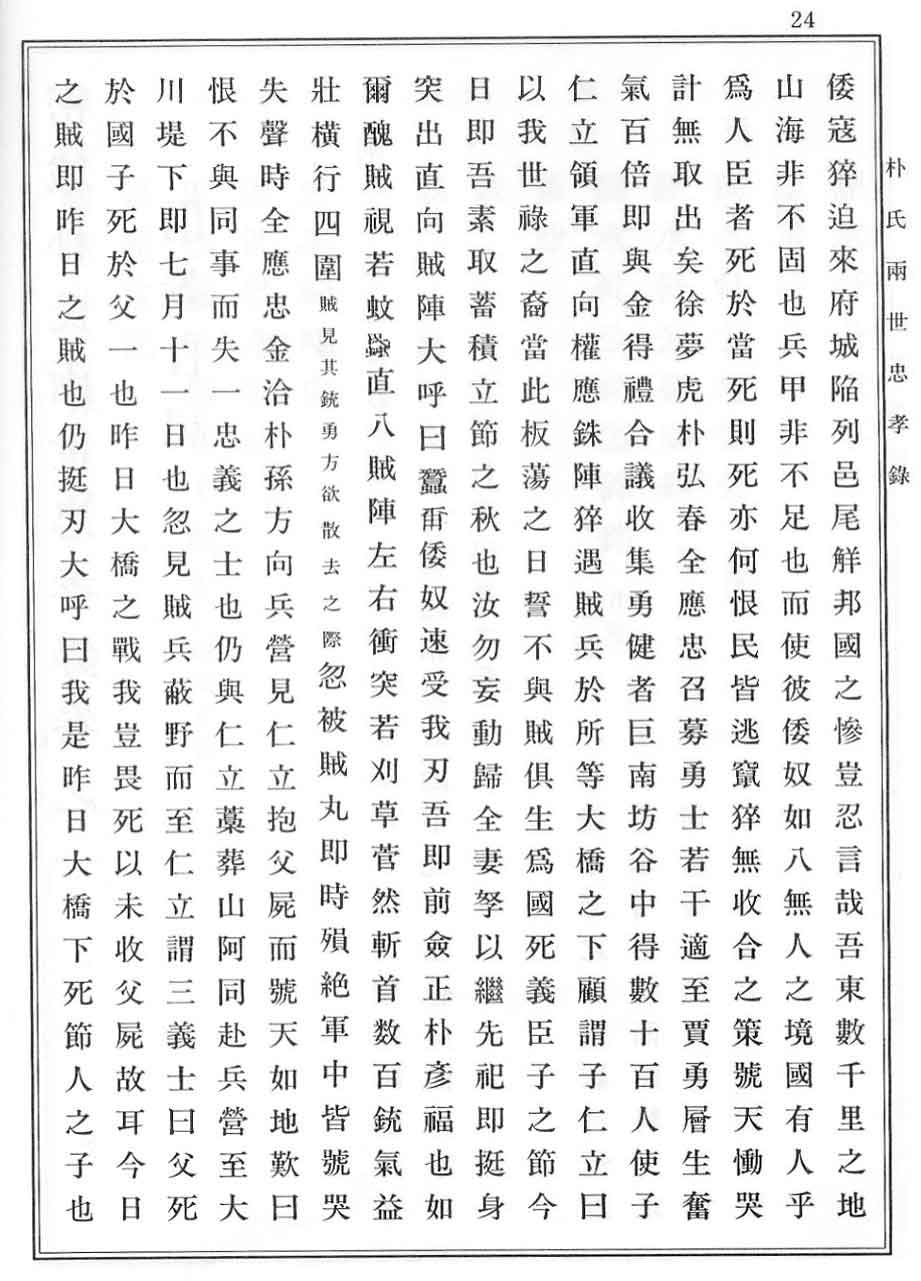 24
朴氏兩世忠孝錄
倭寇猝迫來府城陷列邑尾觧邦國之慘豈忍言哉吾東數千里之地
山海非不固也兵甲非不足也而使彼倭奴如八無人之境國有人乎
爲人臣者死於當死則死亦何恨民皆逃竄猝無收合之策號天慟哭
計無取出矣徐夢虎朴弘春全應忠召募勇士若干適至賈勇層生奮
氣百倍即與金得禮合議收集勇健者巨南坊谷中得數十百人使子
仁立領軍直向權應銖陣猝遇賊兵於所等大橋之下顧謂子仁立曰
以我世祿之裔當此板蕩之日誓不與賊俱生爲國死義臣子之節今
日即吾素取蓄積立節之秋也汝勿妄動歸全妻孥以繼先祀即挺身
突出直向賊陣大呼曰蠶 倭奴速受我刃吾即前僉正朴彥福也如
爾醜賊視若蚊 直八賊陣左右衝突若刈草菅然斬首数百銃氣益
壯橫行四圍賊見其銃勇方欲散去之際忽被賊丸即時殞絶軍中皆號哭
失聲時全應忠金洽朴孫方向兵營見仁立抱父屍而號天如地歎曰
恨不與同事而失一忠義之士也仍與仁立藁葬山阿同赴兵營至大
川堤下即七月十一日也忽見賊兵蔽野而至仁立謂三義士曰父死
於國子死於父一也昨日大橋之戰我豈畏死以未收父屍故耳今日
之賊即昨日之賊也仍挺刃大呼曰我是昨日大橋下死節人之子也